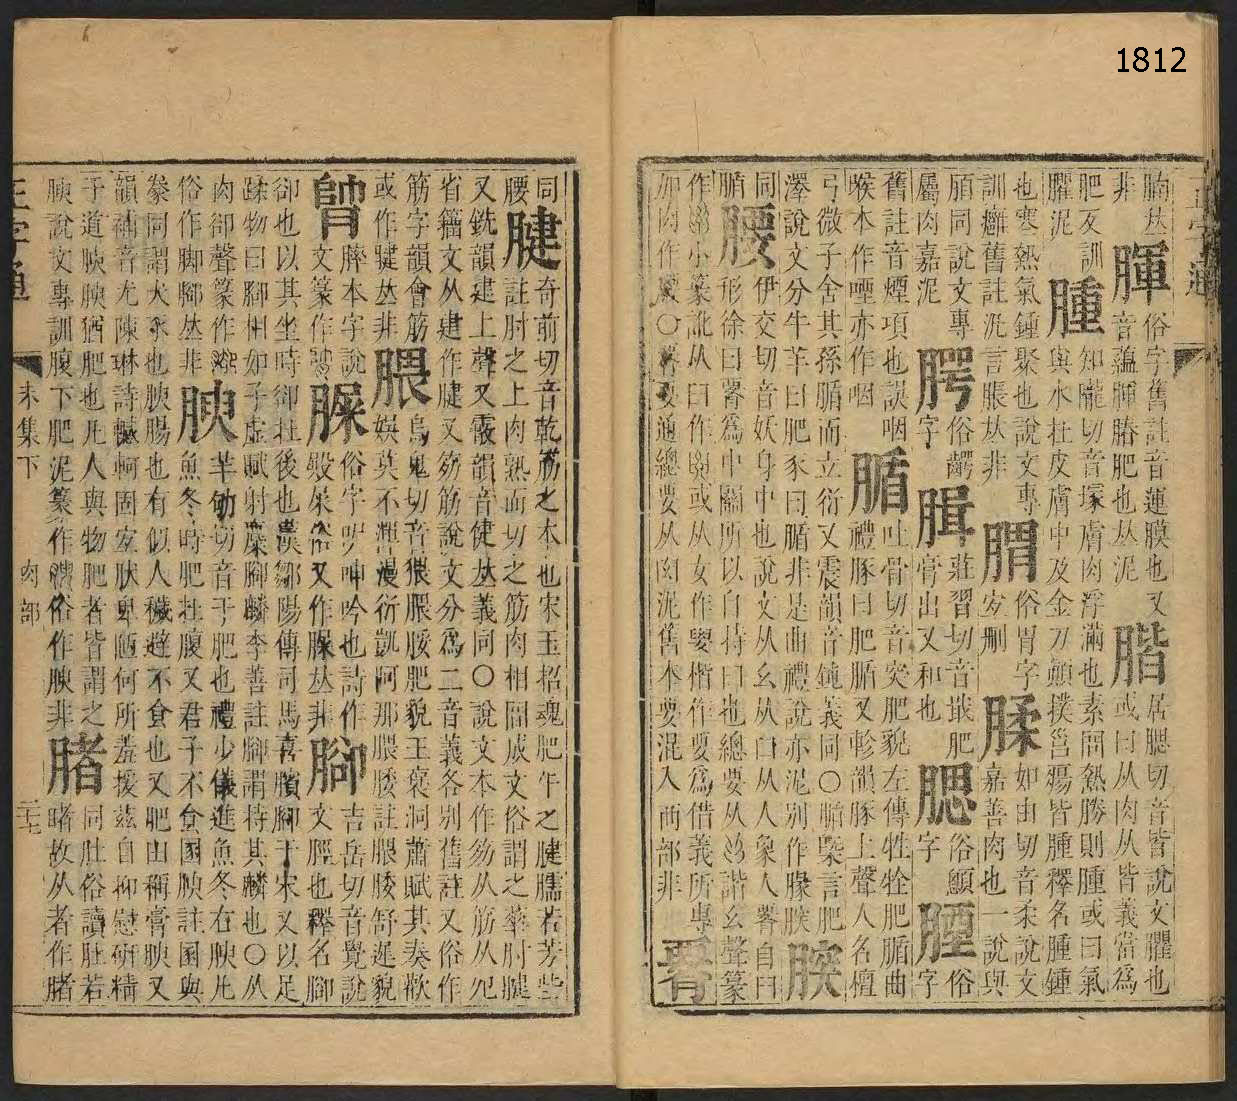 1812
正字通
腩𠀤俗字舊註音蓮膜也又居腮切音皆說文臞也
非腪音蘊腪腃肥也𠀤泥腊或曰从肉从皆義當爲
肥𠬝訓腫知隴切音塚膚肉浮滿也素問熱勝則腫或曰氣
臞泥與水在皮膚中及金刀顛撲營瘍皆腫釋名腫鍾
也寒熱氣鍾聚也說文專腪俗胃字腬如由切音柔說文
訓癰舊註汎言脹𠀤非㝎刪嘉善肉也一說與
䐓同說文專腭俗齶腢莊習切音戢肥腮俗顋腰俗
屬肉嘉泥字膏出又和也字字
舊註音煙項也誤咽腯吐骨切音突肥貌左傳牲牷肥腯曲
喉本作㗃亦作咽禮豚曰肥腯又軫韻豚上聲人名檀
弓微子舍其孫腯而立衍又震韻音鈍義同〇腯槩言肥
澤說文分牛羊曰肥豕曰腯非是曲禮說亦泥別作腞腬
同腰伊交切音妖身中也說文从幺从𦥑从人象人𦥑自𦥑
腯形徐曰𦥑爲中關所以自持𦥑也總要从幺諧幺聲篆
作小篆訛从𦥑作或从女作𡢗楷作要爲借義所專
加肉作腰〇𦥑要通總要从囟泥舊本要混入襾部非
同腱奇前切音乾筋之本也宋玉招魂肥牛之腱臑若芳些
腰註肘之上肉熟而切之筋肉相圜成文俗謂之藥肘腱
又銑韻建上聲又霰韻音健𠀤義同〇說文本作笏从筋从㔾
省籀文从建作腱又笏筋說文分爲二音義各別舊註又俗作
筋字韻會筋腲烏鬼切音猥腲脮肥貌王褒洞蕭賦其奏歡
或作䐿𠀤非娛莫不憚漫衍凱阿那腲腇註腲腇舒遲貌
䐿文膟本字說𦞦俗字呻吟也詩作腳吉岳切音覺說
文篆作殿屎俗又作𦞦𠀤非文脛也釋名腳
卻也以其坐時卻在後也漢鄒陽傳司馬喜臏腳于宋又以足
蹂物曰腳相如子虛賦射麋腳麟李善註腳謂持其麟也〇从
肉卻聲篆作腴羊劬切音于肥也禮少儀進魚冬右腴凡
俗作脚𦡊𠀤非魚冬時肥在腹又君子不食圂腴註圂與
豢同謂犬豕也腴腸也有似人穢避不食也又肥由稱膏腴又
韻補音尤陳琳詩轗軻固宜狀卑陋何所羞援茲自抑慰研精
于道腴腴猶肥也凡人與物肥者皆謂之䐗同肚俗讀肚若
腴說文專訓腹下肥泥篆作俗作腴非䐗故从者作䐗
正字通
未集下
肉部
二十七